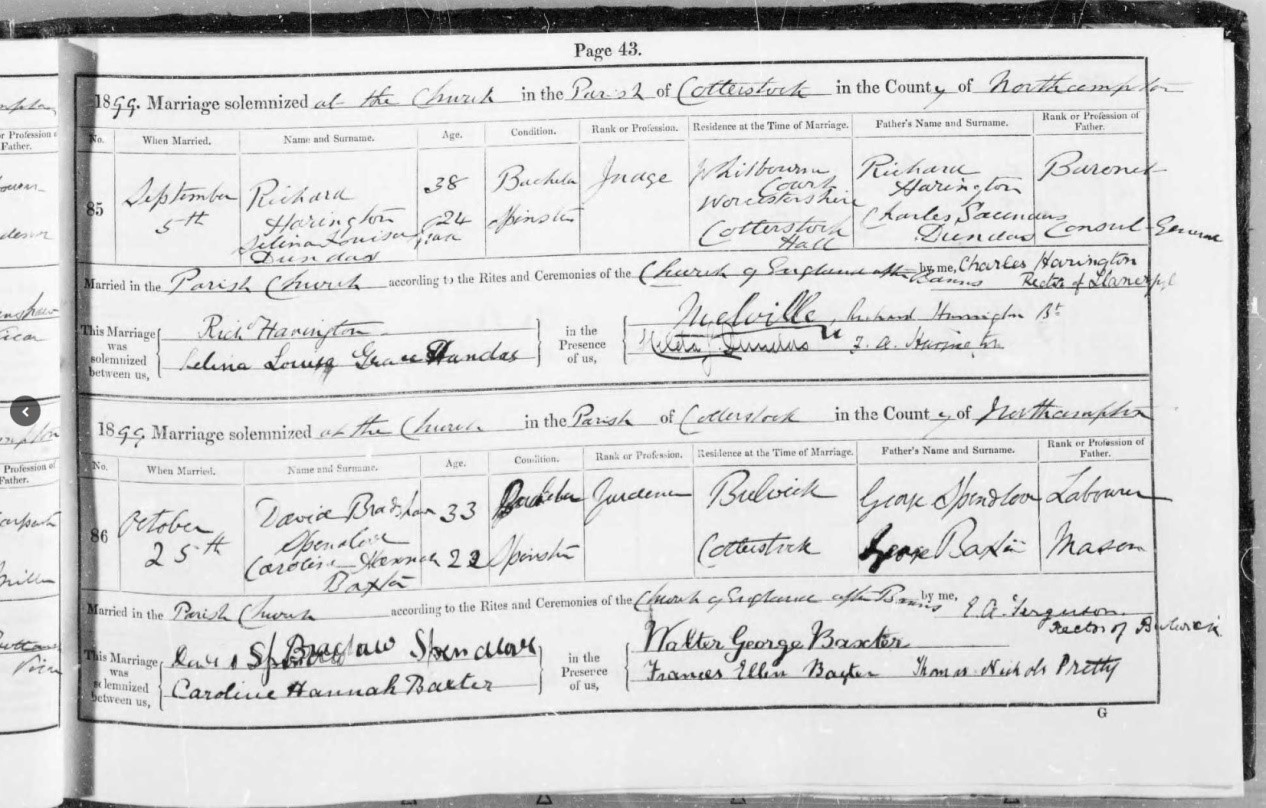 Page 43.
1899. Marriage solemnized at the Church in the Parish of Cotterstock in the County of Northampton
No. When Married. Name and Surname. Age. Condition. Rank or Profession. Residence at the Time of Marriage. Father's Name and Surname. Rank or Profession of Father.
85 September 5th Richard Harington 38 Bachelor Judge Whitbourne Court Worcestershire Richard Harington Baronet
Selina Louisa Grace Dundas 24 Spinster Cotterstock Hall Charles Saunders Dundas Consul-General
Married in the Parish Church according to the Rites and Ceremonies of the Church of England after Banns by me, Charles Harington Rector of
This Marriage was solemnized between us, Richd Harington in the Presence of us, Melville Richard Harington Bt
Selina Louisa Grace Dundas Dundas F. A. Harington
1899. Marriage solemnized at the Church in the Parish of Cotterstock in the County of Northampton
No. When Married. Name and Surname. Age. Condition. Rank or Profession. Residence at the Time of Marriage. Father's Name and Surname. Rank or Profession of Father.
86 October 25th David Bradshaw Spendlove 33 Bachelor Gardener Bulwick George Spendlove Labourer
Caroline Hannah Baxter 22 Spinster Cotterstock George Baxter Mason
Married in the Parish Church according to the Rites and Ceremonies of the Church of England after Banns by me, Ferguson Rector of Bulwick
This Marriage was solemnized between us, David Bradshaw Spendlove in the Presence of us, Walter George Baxter
Caroline Hannah Baxter Frances Ellen Baxter Thomas Nichols Pretty
G